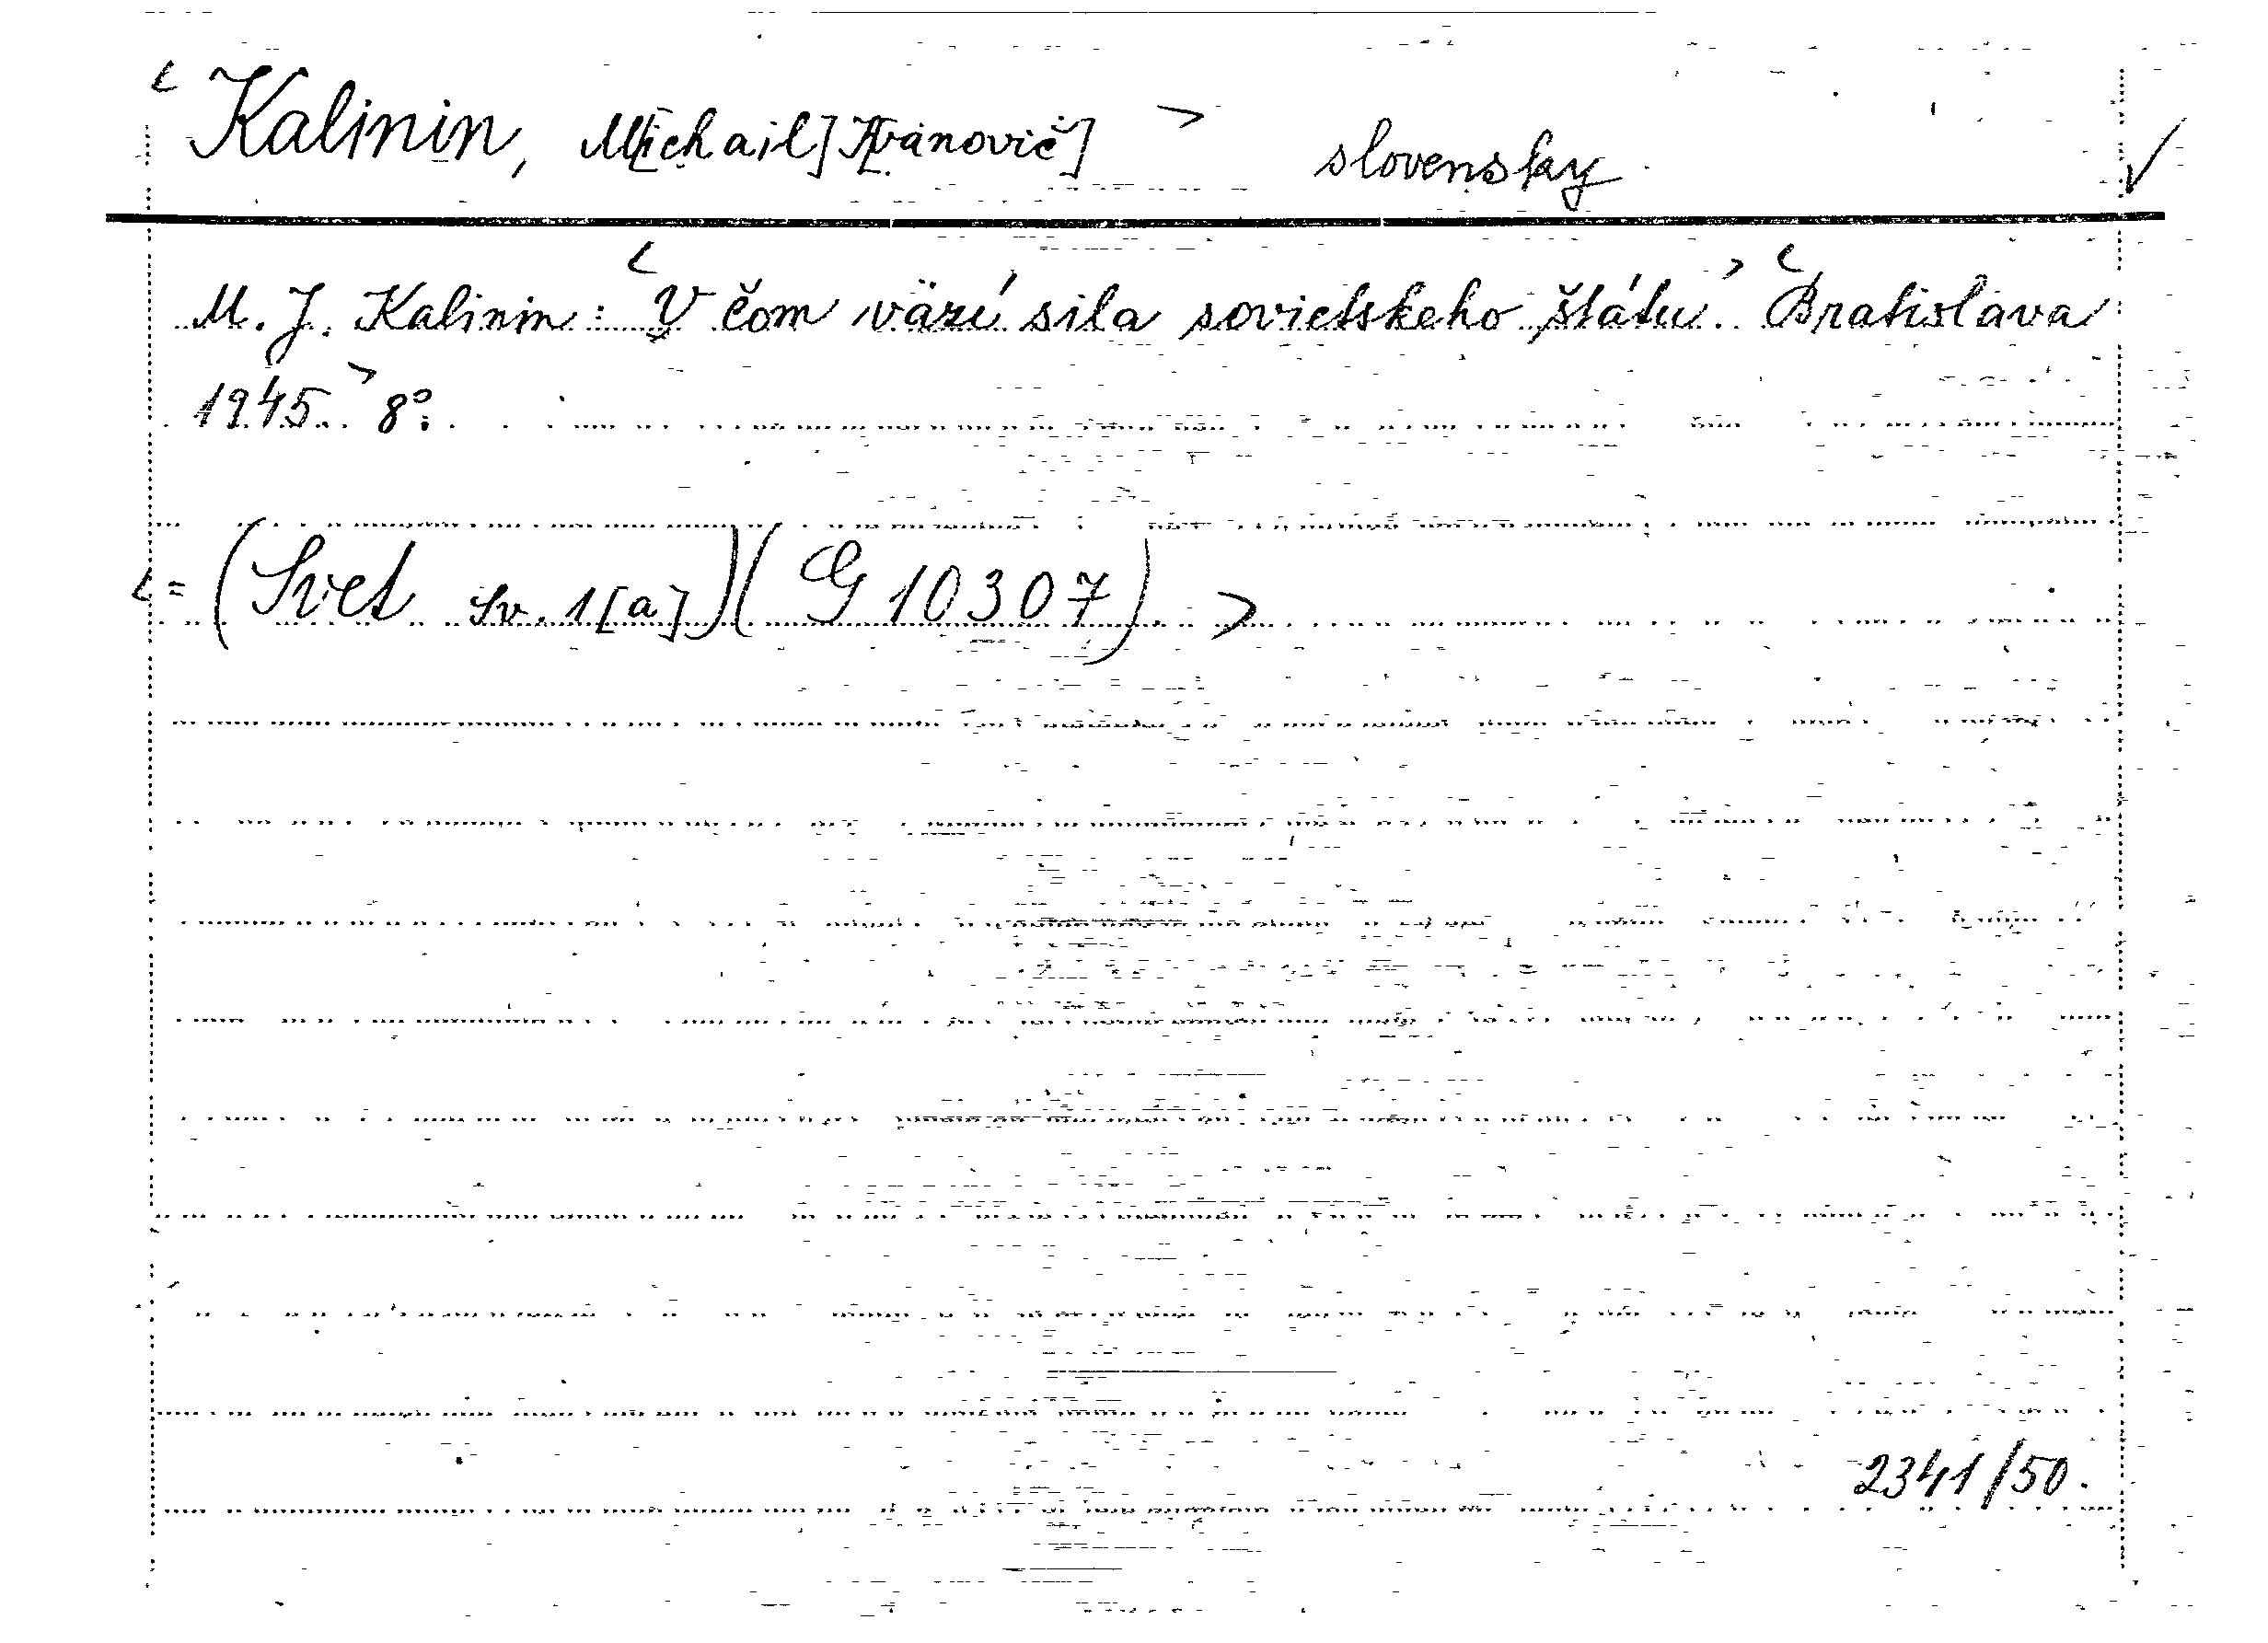 < Kalinin, M[ichail] I[vanovič] > slovensky ✓
M. J. Kalinin: < V čom väzí sila sovietskeho štátu. > < Bratislava
1945. > 8°.
< = (Svet sv. 1[a]) (G 10307). >
2341/50.